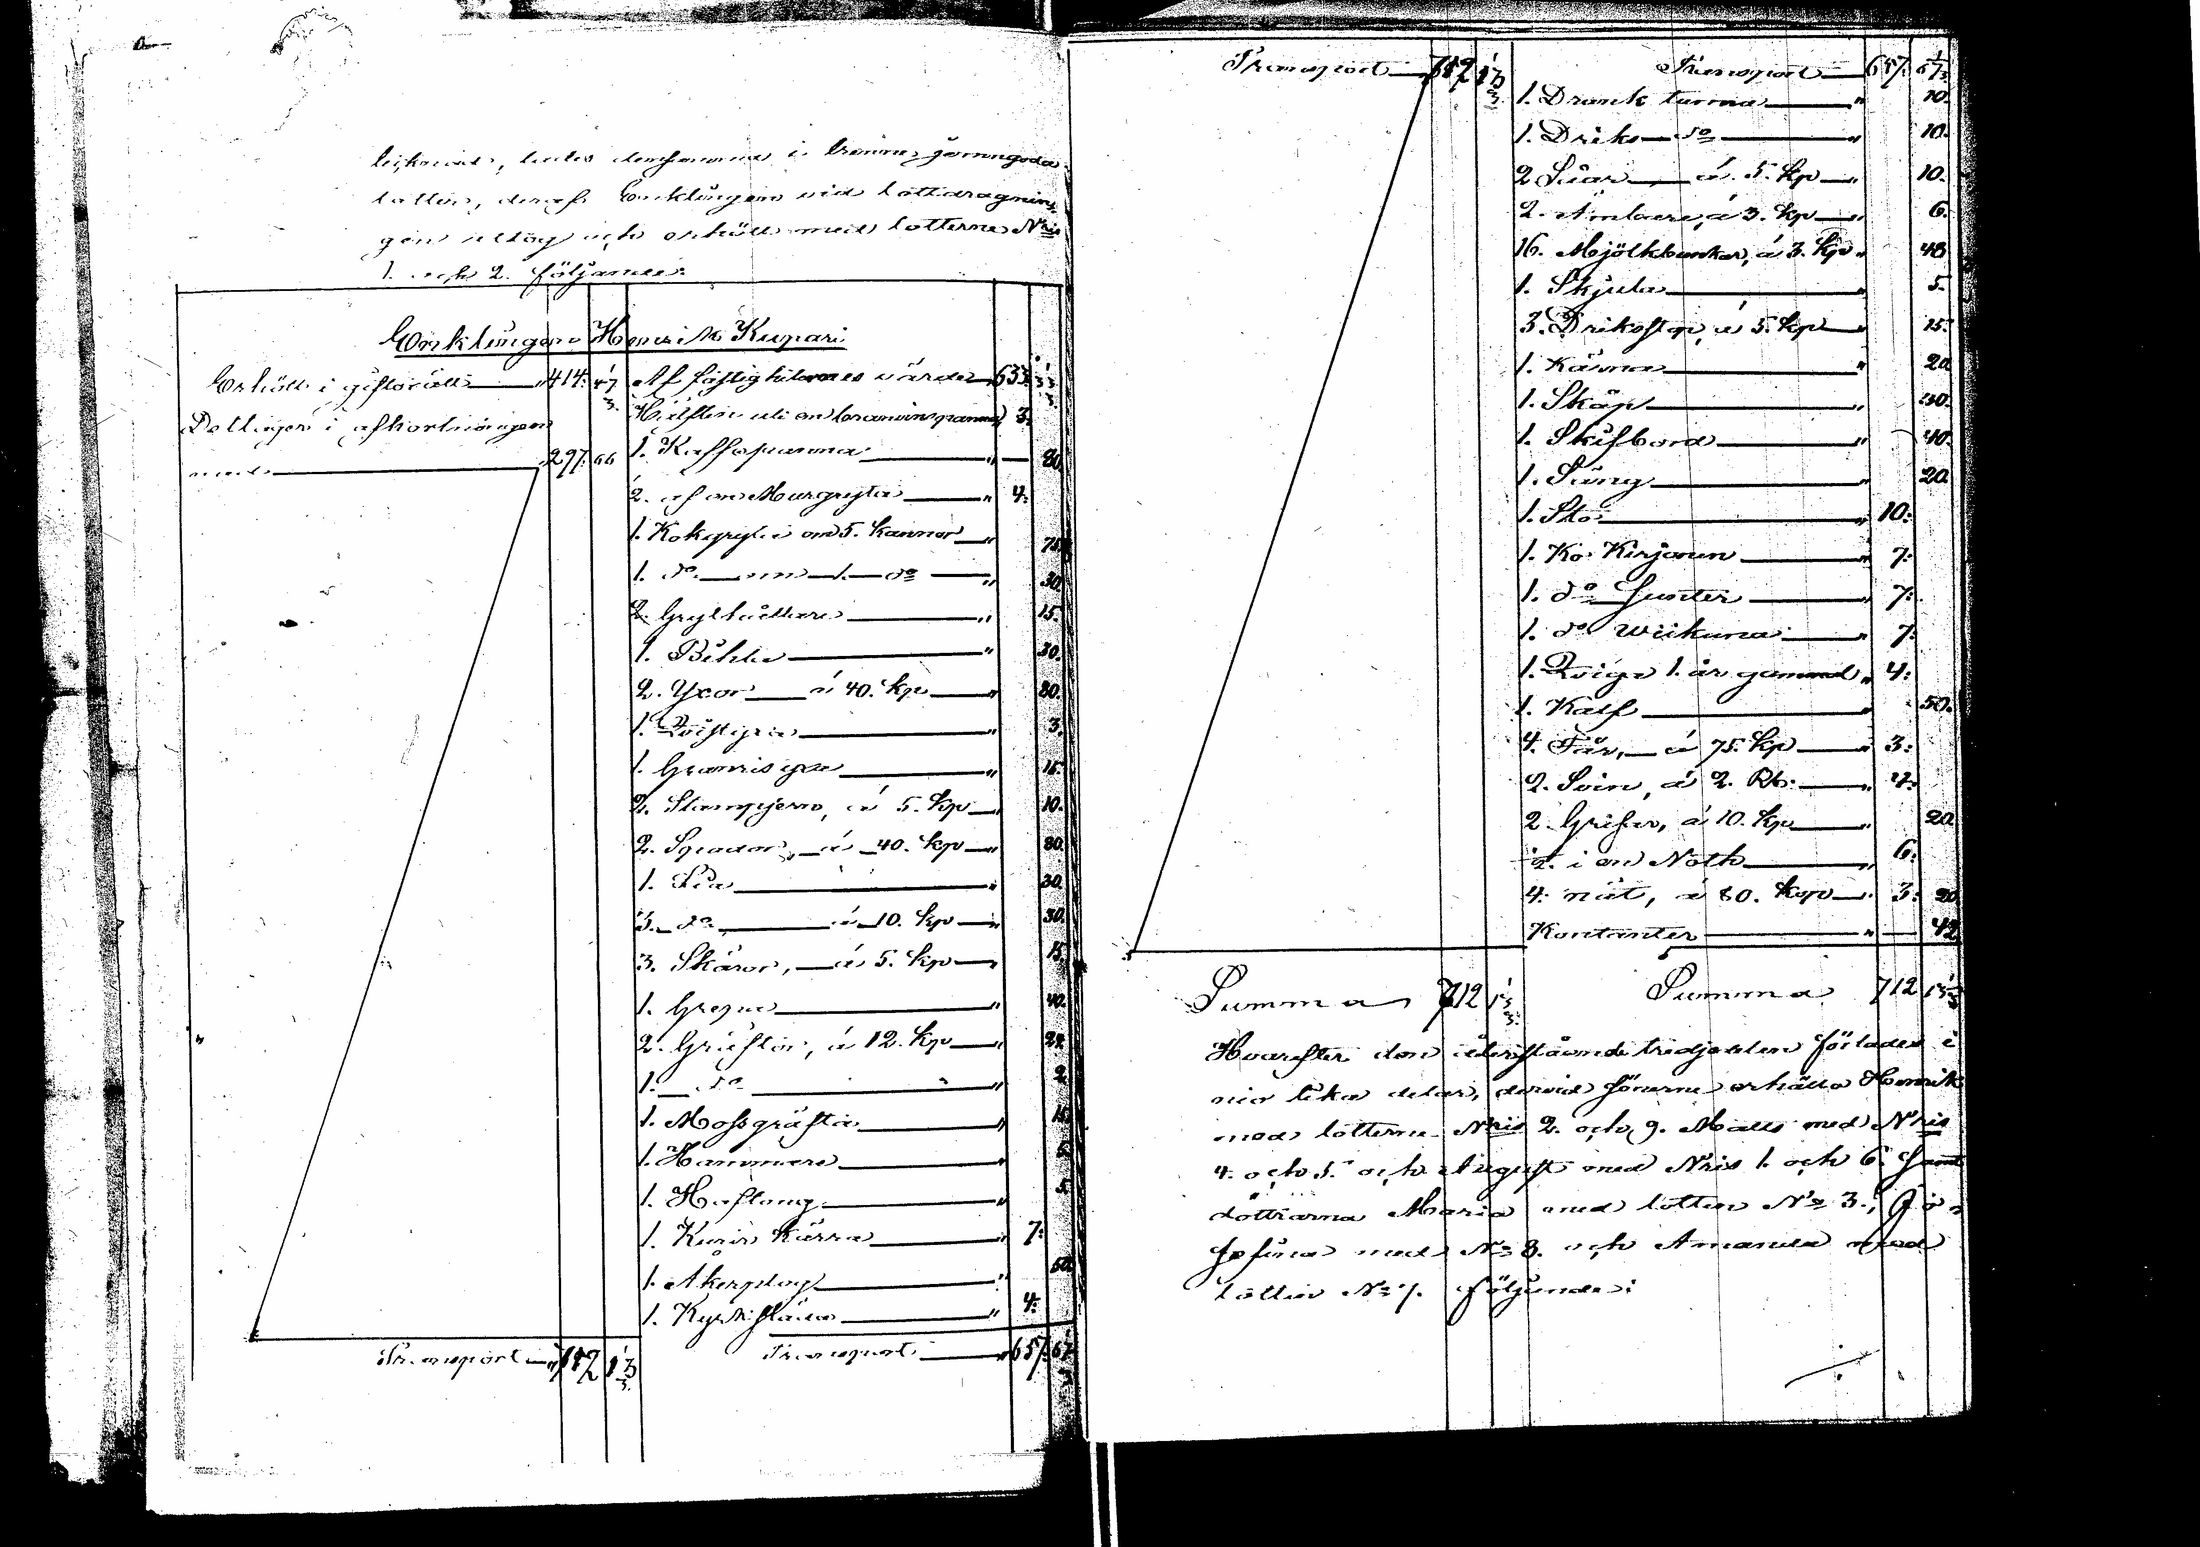 delades densamma i trenne jemngoda
lotter, deraf Enklingen vid lottdragnin-
gen uttog och erhöll med lotterne Nris
1. och 2. följande:
Enklingen Henrik Kupari
Erhöll i giftorätt 414: 47 1/3.
Dettager i afkortningen
med 297. 66
Transport 712 13 1/3.
Af fastighetens värde 633. 33 1/3
Hälften uti en bränvinspanna 3.
1. Kaffepanna 80.
1/2. af en Murgryta 4:
1. Kokgryta om 5. kannor 75.
1. do om 1. do 30.
2. Grythållare 15.
1. Bihla 30.
2. Yxor á 40. kp 80.
1. Qvistyxa 3.
1. Granris yxa 15.
2. Stampjern, á 5. kp 10.
2. Spador, á 40. kp 80.
1. Lia 30.
3. do á 10. kp 30.
3. Skäror, á 5. kp 15.
1. Grepe 40.
2. Gräftor, á 12. kp 24.
1. do 2.
1. Mossgräfta 15.
1. Hammare 5.
1. Hoftång 5.
1. Kärra 7:
1. Åkerplog 50.
1. Kyrksläda 4:
Transport 657. 67 1/3
Transport 712 13 1/3.
Transport 657. 67 1/3.
1. Drank tunna 10.
1. Driks do 10.
2 Såar á 5. kp 10.
2. Ämbare, á 3. kp 6.
16. Mjölkbunkar, á 3. kp 48
1. Skjula 5.
3. Drikstop, á 5. kp 15.
1. Kärna 20
1. Skåp 30.
1. Skifbord 40.
1. Säng 20.
1. Sto 10:
1. Ko Kirjaun 7:
1. do 7:
1. do Wiikuna 7:
1. Qviga 1. år gammal 4:
1. Kalf 50.
4. Får, á 75. kp 3:
2. Svin, á 2. Rb. 4:
2. Grisar, á 10. kp 20
i en Noth 6:
4. nät, á 80. kop 3: 20
Kontanter 42
Summa 712 13 1/3.
Summa 712 13 1/3
Hvarefter den återstående tridjedelen fördelades i
nio lika delar, dervid sönerne erhållo Henrik
med lotterne Nris 2. och 9. Matts med Nris
4. och 5. och August med Nris 1. och 6. samt
döttrarna Maria med lotten No 3., Jo-
sefina med No 8. och Amanda med
lotten No 7. följande: